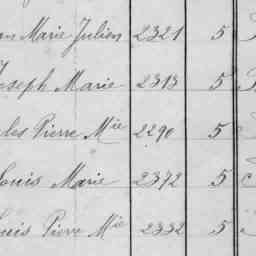 Marie Julien 2321 5
Joseph Marie 2313 5
Pierre Mie 2290 5
Louis Marie 2372 5
Louis Pierre Mie 2332 5